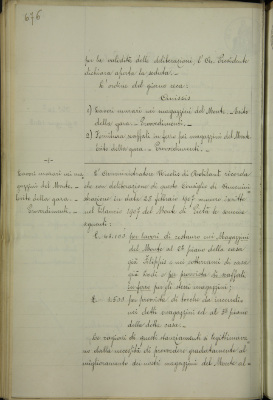 676
per la validità delle deliberazioni, l'On. Presidente
dichiara aperta la seduta. -
L'ordine del giorno reca:
Omissis
1) Lavori murari nei magazzini del Monte. - Esito
della gara. - Provvedimenti. -
2) Fornitura scaffali in ferro pei magazzini del Monte
Esito della gara. - Provvedimenti. -
Lavori murari nei ma-
gazzini del Monte. -
Esito della gara. -
Provvedimenti. -
L'Amministratore Miccolis di Chatelaut ricorda
che con deliberazione di questo Consiglio di Amministra-
zione in data 25 febbraio 1907 vennero iscritte
nel bilancio 1907 del Monte di Pietà le somme
seguenti:
per lavori di restauro nei Magazzini
del Monte al 2° piano della casa
già Filippis e nei sotterranei di casa
già e per provvista di scaffali
in ferro per gli stessi magazzini;
£. 2.500 per provvista di bocche da incendio
nei detti magazzini ed al 3° piano
delle dette case. -
Le ragioni di questi stanziamenti si legittimava-
no dalla necessità di provvedere gradatamente al
miglioramento dei nostri magazzini del Monte al-